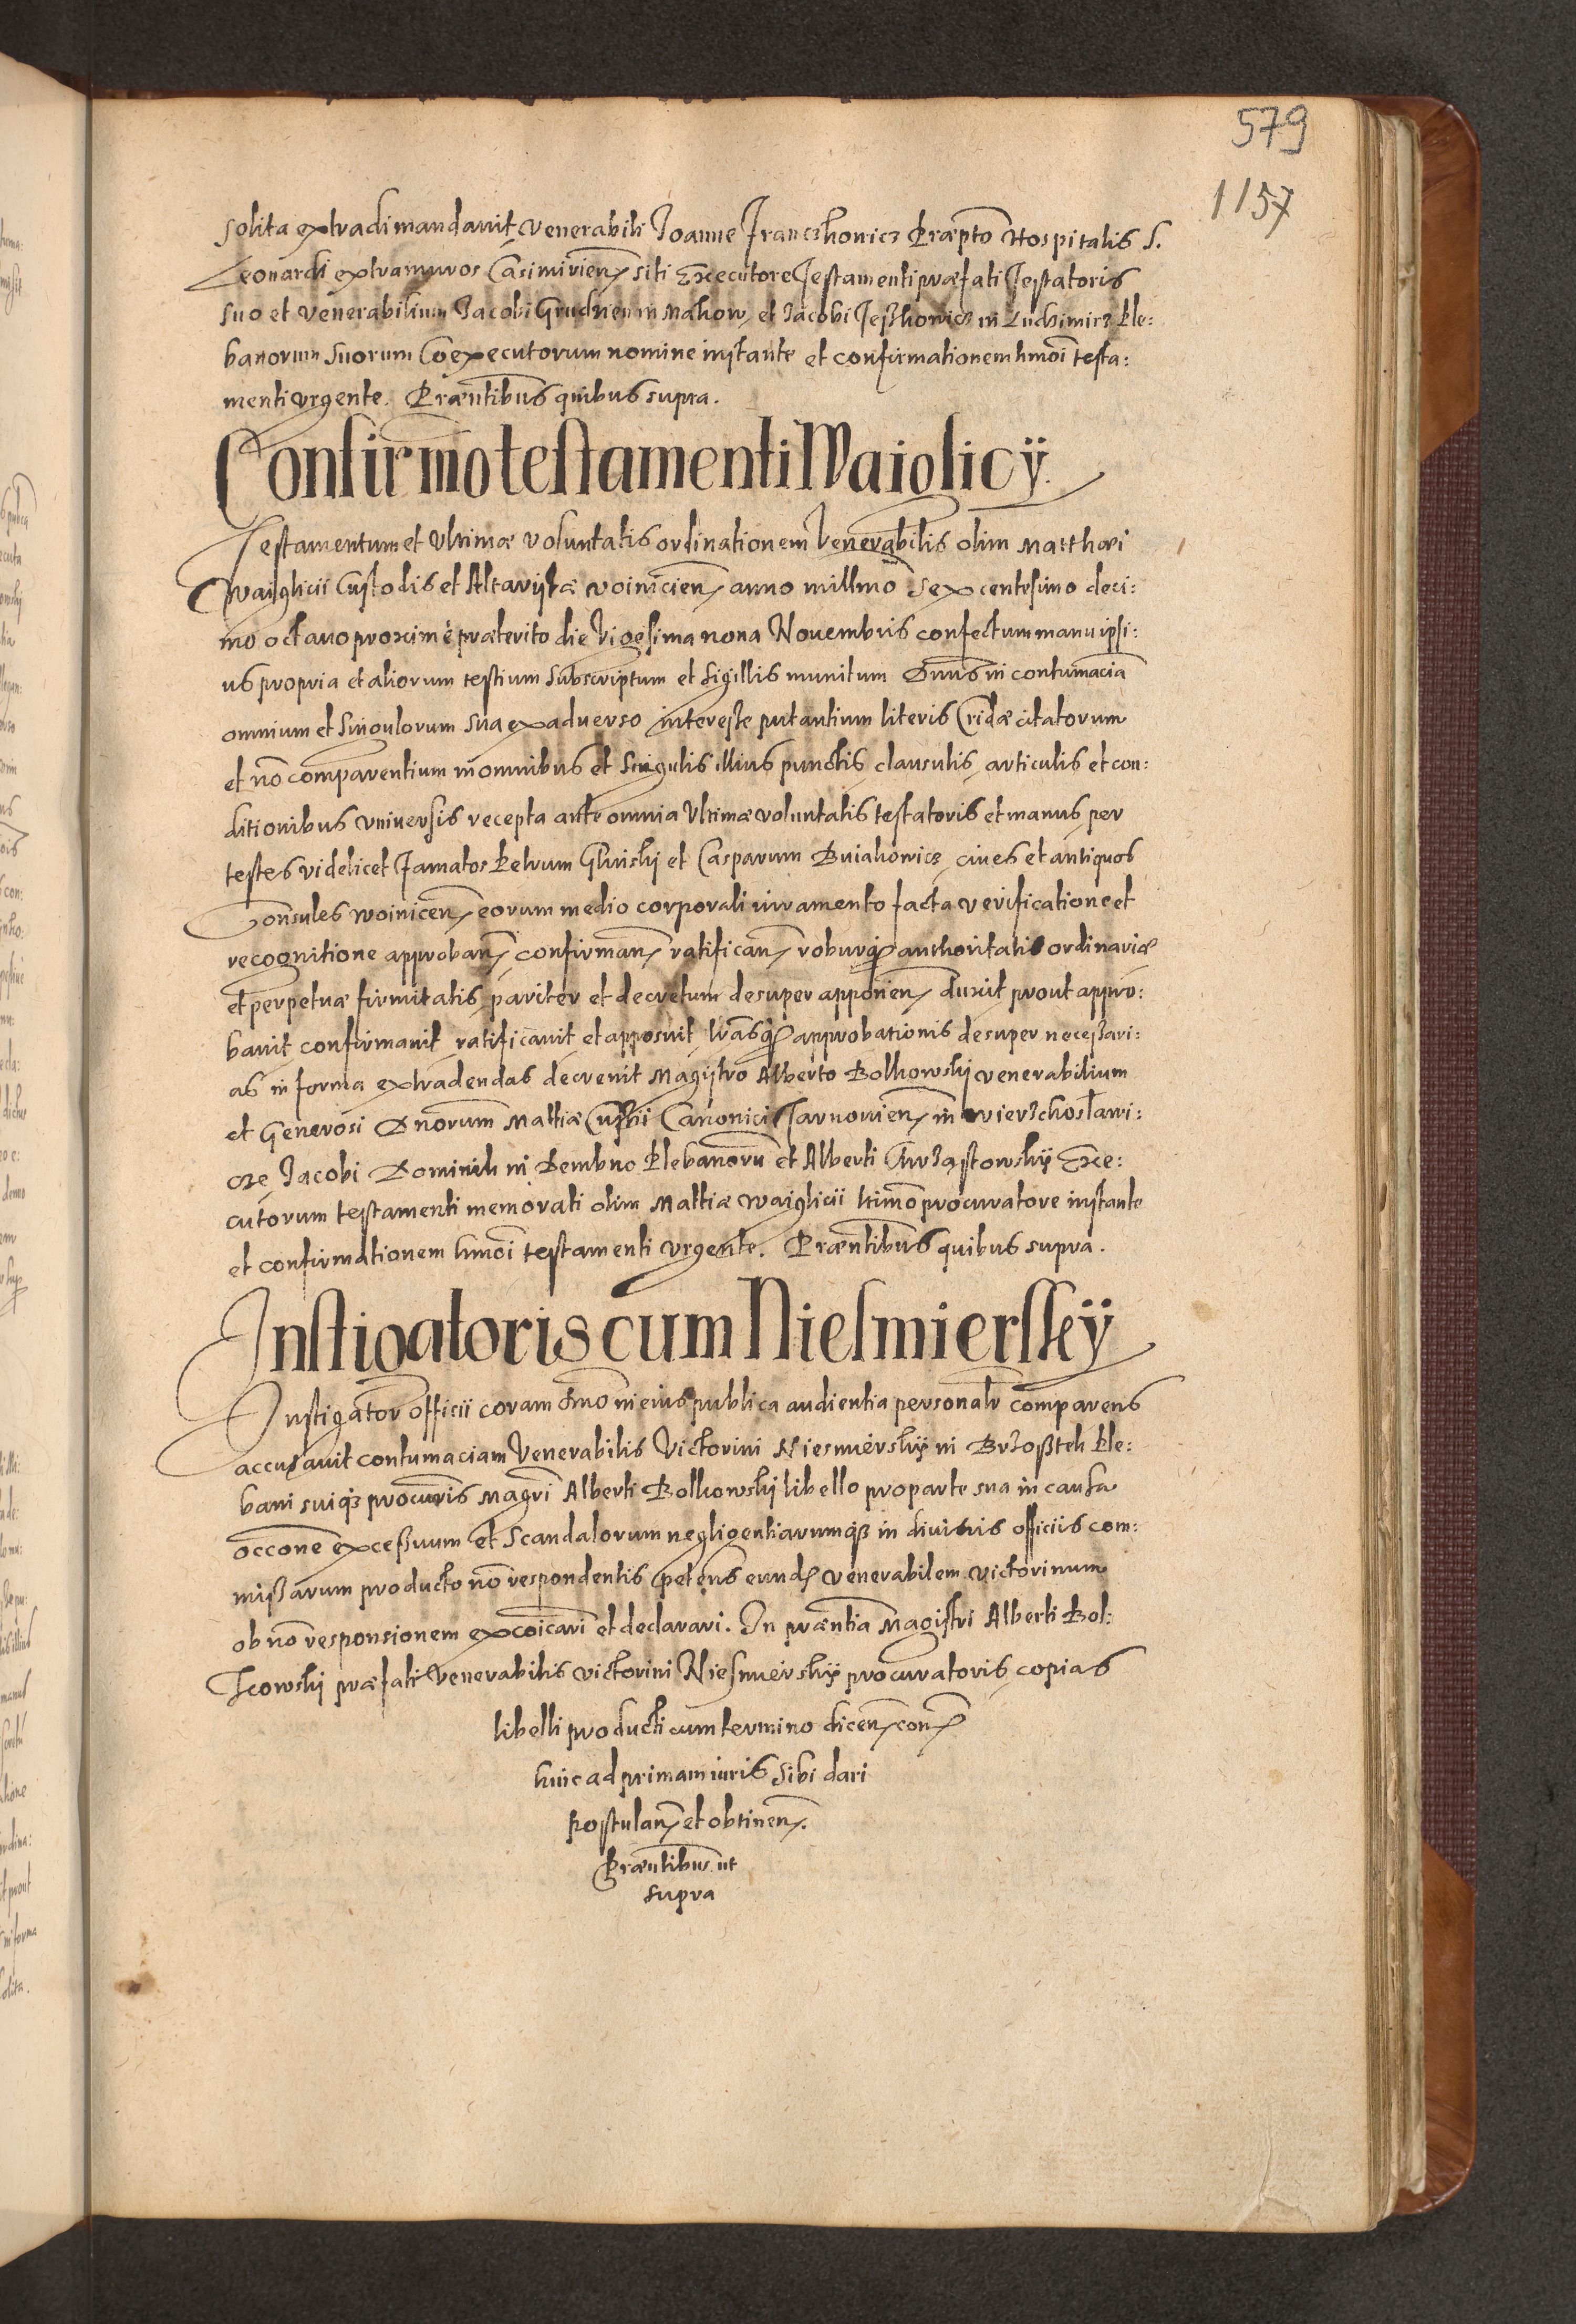 579
1157
solita extradi mandavit, venerabili Joanne Franczkowicz Præpto Hospitalis S.
Leonardi extra muros Casimirien̄ siti Executore Testamenti præfati Testatoris
suo et venerabilium Jacobi Grudzien in Makow, et Jacobi Jeszkowicz in Luchimirz Ple:
banorum suorum Coexecutorum nomine instante et confirmationem hmōi testa:
menti urgente. Præntibus quibus supra.
Confirmō testamenti Waiglicÿ.
Testamentum et Ultimæ voluntatis ordinationem Venerabilis olim Matthæi
Waiglicii Custodis et Altaristæ Voinicien̄ anno millmō sexcentesimo deci:
mo octavo proximè præterito die Vigesima nona Novembris confectum manu ipsi:
us propria et aliorum testium subscriptum et sigillis munitum Dnus in contumaciā
omnium et singulorum sua ex adverso interesse putantium literis Cridæ citatorum
et nō comparentium in omnibus et singulis illius punctis, clausulis, articulis et con:
ditionibus universis recepta ante omnia Ultimæ voluntatis testatoris et manus per
testes videlicet Famatos Petrum Gluiski et Casparum Buiakowicz, cives et antiquos
Consules Woinicen̄ eorum medio corporali iuramento facta verificatione et
recognitione approban̄ confirman̄ ratifican̄ roburq authoritatis ordinariæ
et perpetuæ firmitatis pariter et decretum desuper apponen̄ duxit prout appro:
bavit confirmavit ratificavit et apposuit, lrasq approbationis desuper necessari:
as in forma extradendas decrevit Magistro Alberto Bolkowski venerabilium
et Generosi Dnorum Mattiæ Canonici Tarnovien̄ in Wierzchoslawi:
cze, Jacobi Dominik in Dembno Plebanorū et Alberti Chrząstowskÿ Exe:
cutorum testamenti memorati olim Mattiæ Waiglicii ltimō procuratore instante
et confirmationem hmōi testamenti urgente. Præntibus quibus supra.
Instigatoris cum Niesmierskÿ
Instigator officii coram dnō in eius publica audientia personalr comparens
accusavit contumaciam Venerabilis Victorini Niesmierskÿ in Brzostek Ple:
bani suiq procuris Magri Alberti Bolkowski libello pro parte sua in causa
occone excessuum et scandalorum negligentiarumq in divinis officiis com:
missarum producto nō respondentis petens eund venerabilem Victorinum
ob nō responsionem excōicari et declarari. In præntia Magistri Alberti Bol:
kowski præfati Venerabilis Victorini Niesmierskÿ procuratoris, copias
libelli producti cum termino dicen̄ con
huic ad primam iuris sibi dari
postulan̄ et obtinen̄.
Præntibus ut
supra